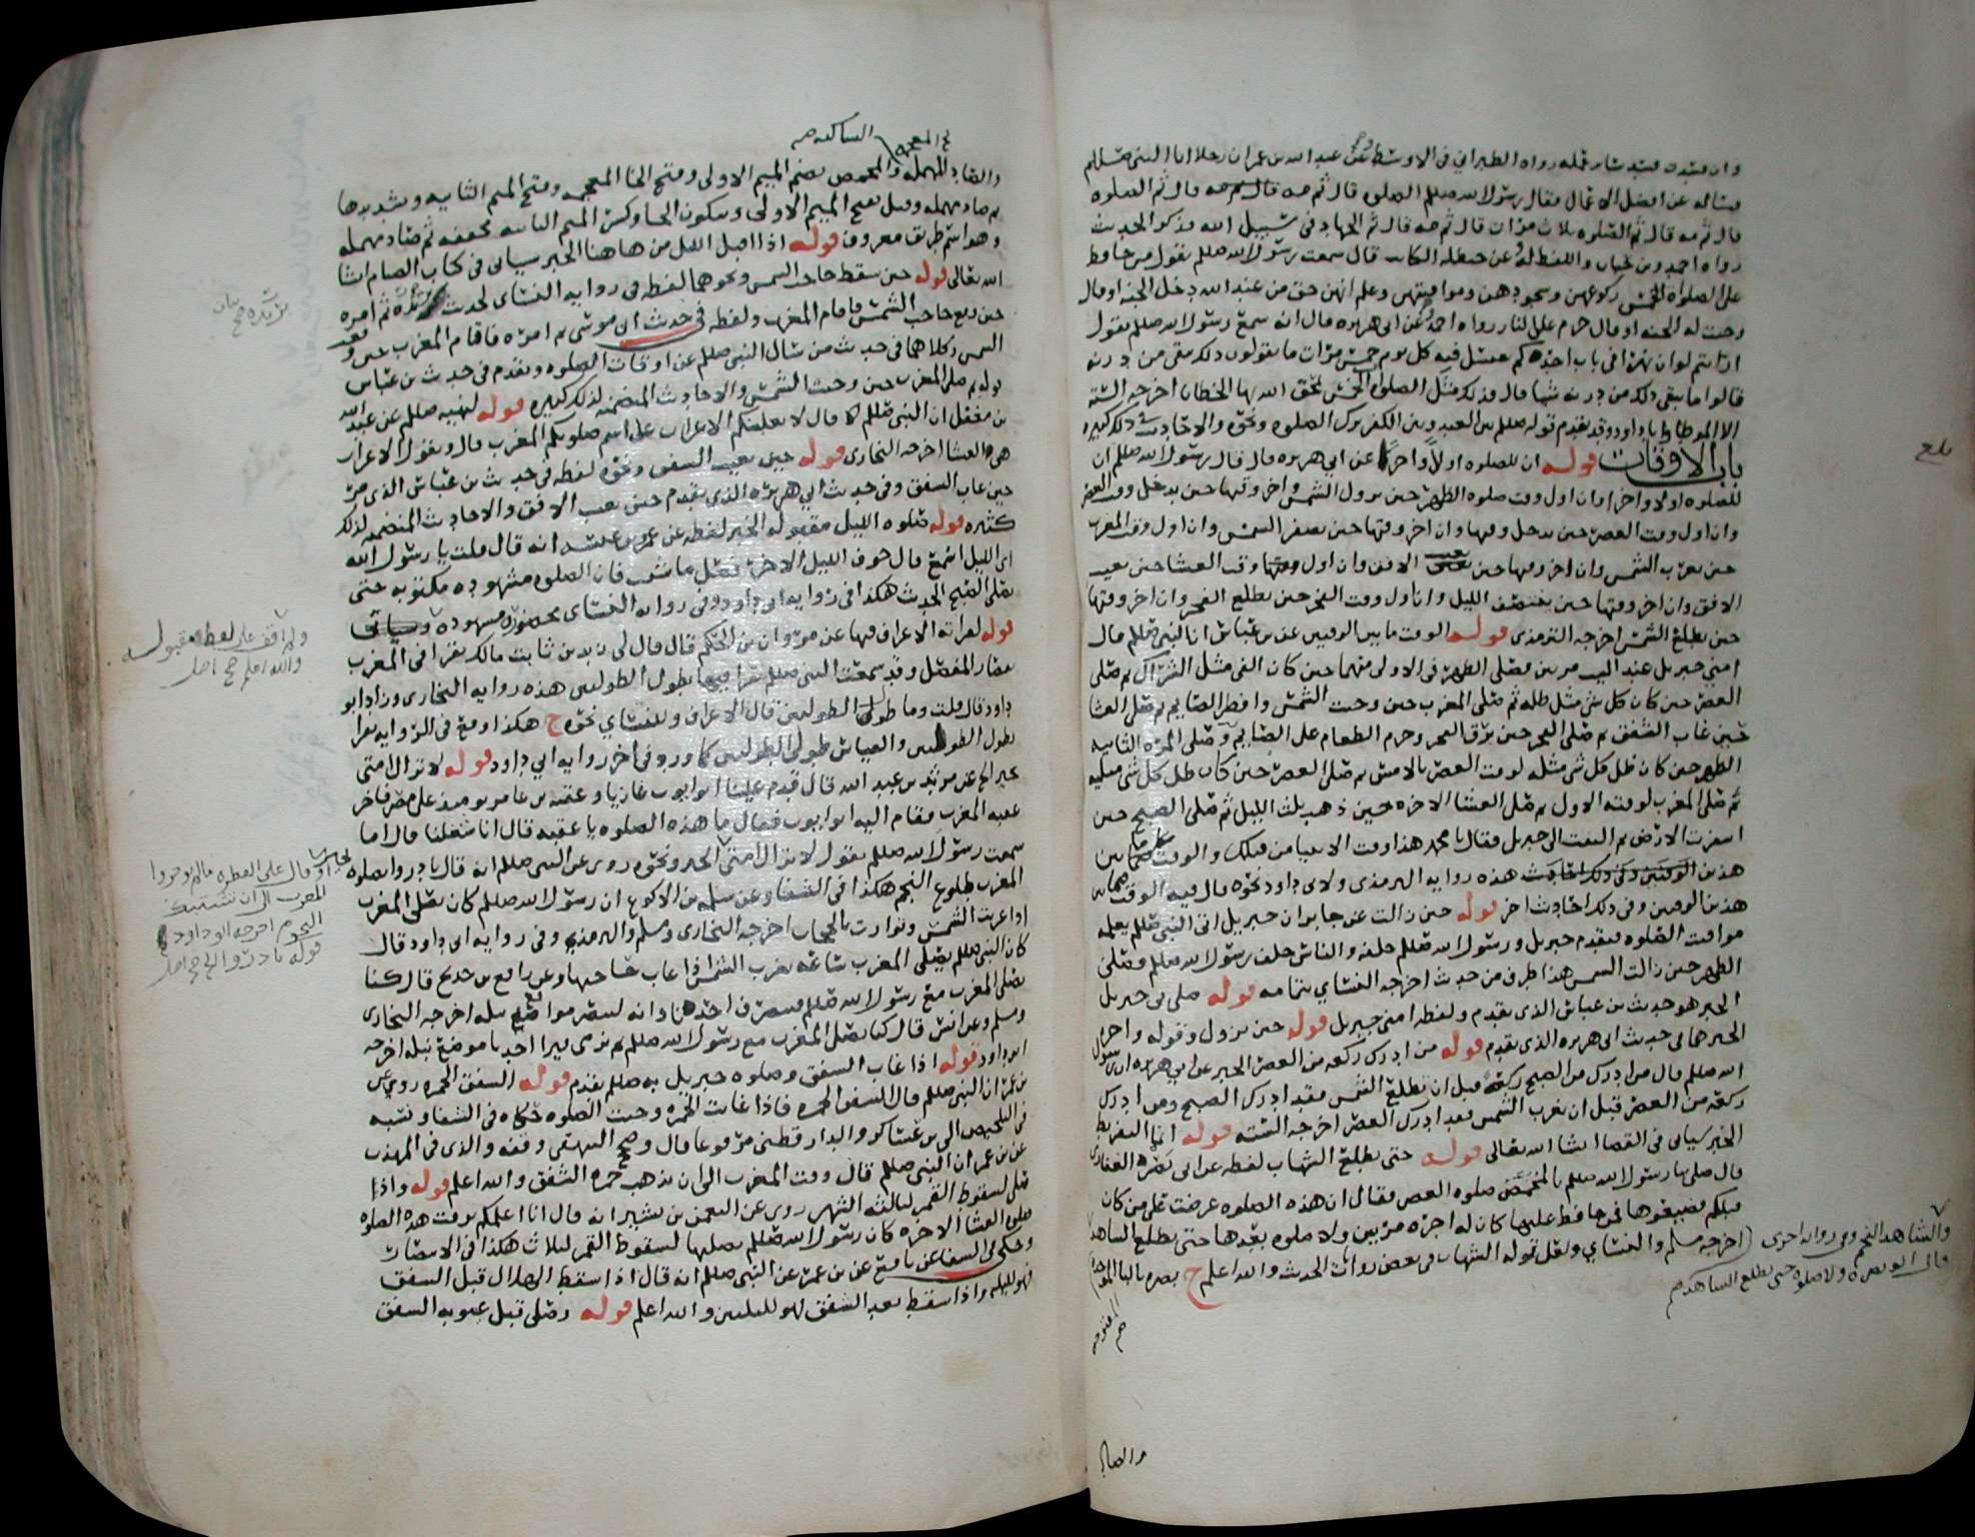 وان فسدت فسد سائر عمله رواه الطبراني في الاوسط وعن عبد الله بن عمر ان رجلا اتا النبي صللم
فساله عن افضل الاعمال فقال رسول الله صللم الصلوه قال ثم مه قال ثم مه قال ثم الصلوه
قال ثم مه قال ثم الصلوه ثلاث مرات قال ثم مه قال ثم الجهاد في سبيل الله فذكر الحديث
رواه احمد وبن حبان واللفظ له وعن حنظله الكاتب قال سمعت رسول الله صللم يقول من حافظ
على الصلواة الخمس ركوعهن وسجودهن ومواقيتهن وعلم انهن حق من عند الله دخل الجنه او قال
وجبت له الجنه او قال حرم على النار رواه احمد وعن ابي هريره قال انه سمع رسول الله صللم يقول
ارايتم لو ان نهرا في باب احدكم يغتسل فيه كل يوم خمس مرات ما يقولون ذلك يبقي من درنه
قالوا ما يبقي ذلك من درنه شيا قال فذلك مثل الصلواة الخمس يمحق الله بها الخطايا اخرجه السته
الا الموطا وابا داود وقد تقدم قوله صللم بين العبد وبين الكفر ترك الصلوه ونحوه والاحاديث في ذلك كثيره
باب الاوقات قوله ان للصلوه اولا واخرا عن ابي هريره قال قال رسول الله صللم ان
للصلوه اولا واخرا وان اول وقت صلوه الظهر حين تزول الشمس واخر وقتها حين يدخل وقت العصر
وان اول وقت العصر حين يدخل وقتها وان اخر وقتها حين تصفر الشمس وان اول وقت المغرب
حين تغرب الشمس وان اخر وقتها حين يغيب الافق وان اول وقت العشا حين يغيب
الافق وان اخر وقتها حين ينتصف الليل وان اول وقت الفجر حين يطلع الفجر وان اخر وقتها
حين تطلع الشمس اخرجه الترمذي قوله الوقت ما بين الوقتين عن بن عباس ان النبي صللم قال
امني جبريل عند البيت مرتين فصلى الظهر في الاولى منهما حين كان الفي مثل الشراك ثم صلى
العصر حين كان كل شي مثل ظله ثم صلى المغرب حين وجبت الشمس وافطر الصايم ثم صلى العشا
حين غاب الشفق ثم صلى الفجر حين برق الفجر وحرم الطعام على الصايم وصلى المره الثانيه
الظهر حين كان ظل كل شي مثله لوقت العصر بالامس ثم صلى العصر حين كان ظل كل شي مثليه
ثم صلى المغرب لوقته الاول ثم صلى العشا الاخره حين ذهب ثلث الليل ثم صلى الصبح حين
اسفرت الارض ثم التفت الى جبريل فقال يا محمد هذا وقت الانبيا من قبلك والوقت فيما بين
هذين الوقتين هذه روايه الترمذي ولابي داود نحوه قال فيه الوقت ما بين
هذين الوقتين وفي ذلك احاديث اخر قوله حين زالت عن جابر ان جبريل اتى النبي صللم يعلمه
مواقيت الصلوه فتقدم جبريل ورسول الله صللم خلفه والناس خلف رسول الله صللم فصلى
الظهر حين زالت الشمس هذا طرف من حديث اخرجه النساي بتمامه قوله صلى بي جبريل
الخبر هو حديث بن عباس الذي تقدم ولفظه امني جبريل قوله حين تزول وقوله واخر
الخبر هما في حديث ابي هريره الذي تقدم قوله من ادرك ركعه من العصر الخبر عن ابي هريره ان رسول
الله صللم قال من ادرك من الصبح ركعة قبل ان تطلع الشمس فقد ادرك الصبح ومن ادرك
ركعه من العصر قبل ان تغرب الشمس فقد ادرك العصر اخرجه السته قوله انما التفريط
الخبر سياتي في القضا انشا الله تعالى قوله حتى يطلع الشهاب لفظه عن ابي بصره الغفاري
قال صلى بنا رسول الله صللم بالمخمص صلوه العصر فقال ان هذه الصلوه عرضت على من كان
قبلكم فضيعوها فمن حافظ عليها كان له اجره مرتين ولا صلوه بعدها حتى يطلع الشاهد
اخرجه مسلم والنساي ولعل قوله الشهاب في بعض روايات الحديث والله اعلم ح بصره بالبا الموحده
والشاهد النجم وفي روايه اخرى
قال ابو بصره ولا صلوه حتى يطلع الشاهد صح
المفتوحه
صح
بلغ
والصاد
المعجمه الساكنه صح
والصاد المهمله والمخمص بضم الميم الاولى وفتح الخا المعجمه وفتح الميم الثانيه وتشديدها
ثم صاد مهمله وقيل بفتح الميم الاولى وسكون الخا وكسر الميم الثانيه مخففه ثم صاد مهمله
وهو اسم طريق معروف قوله اذا اقبل الليل من هاهنا الخبر سياتي في كتاب الصيام انشا
الله تعالى قوله حين سقط حاجب الشمس ونحوهما لفظه في روايه النساي لحديث بريده ثم امره
حين وقع حاجب الشمس فاقام المغرب ولفظه في حديث ابي موسى ثم امره فاقام المغرب حين وقعت
الشمس وكلاهما في حديث من سال النبي صللم عن اوقات الصلوه وتقدم في حديث بن عباس
قوله ثم صلى المغرب حين وجبت الشمس والاحاديث المتضمنه لذلك كثيره قوله لنهيه صللم عن عبد الله
بن مغفل ان النبي صللم قال لا يغلبنكم الاعراب على اسم صلوتكم المغرب قال ويقول الاعراب
هي العشا اخرجه البخاري قوله حين يغيب الشفق ونحوه لفظه في حديث بن عباس الذي مر
حين غاب الشفق وفي حديث ابي هريره الذي تقدم حين يغيب الافق والاحاديث المتضمنه لذلك
كثيره قوله صلوه الليل مقبوله الخبر لفظه عن عمرو بن عبسه انه قال قلت يا رسول الله
اي الليل اسمع قال جوف الليل الاخر فصل ما شئت فان الصلوه مشهوده مكتوبه حتى
تصلي الصبح الحديث هكذا في روايه ابي داود وفي روايه النساي محضوره مشهوده
قوله لقراته الاعراف فيها عن مروان بن الحكم قال قال لي زيد بن ثابت مالك تقرا في المغرب
بقصار المفصل وقد سمعت النبي صللم يقرا فيها بطول الطوليين هذه روايه البخاري وزاد ابو
داود قال قلت وما طول الطوليين قال الاعراف وللنساي نحوه ح هكذا وقع في الروايه يقرا
بطول الطوليين والقياس طولى الطوليين كما ورد في اخر روايه ابي داود قوله لا تزال امتي
بخير الخ عن مرثد بن عبد الله قال قدم علينا ابو ايوب غازيا وعقبه بن عامر يوميذ على مصر فاخر
عقبه المغرب فقام اليه ابو ايوب فقال ما هذه الصلوه يا عقبه قال انا شغلنا قال اما
سمعت رسول الله صللم يقول لا تزال امتي الخبر ونحوه روي عن النبي صللم انه قال بادروا بصلوه
المغرب طلوع النجم هكذا في الشفا وعن سلمه بن الاكوع ان رسول الله صللم كان يصلي المغرب
اذا غربت الشمس وتوارت بالحجاب اخرجه البخاري ومسلم والترمذي وفي روايه ابي داود قال
كان النبي صللم يصلي المغرب ساعه تغرب الشمس اذا غاب حاجبها وعن رافع بن خديج قال كنا
نصلي المغرب مع رسول الله صللم فينصرف احدنا وانه ليبصر مواقع نبله اخرجه البخاري
ومسلم وعن انس قال كنا نصلي المغرب مع رسول الله صللم ثم نرمي فيرا احدنا موضع نبله اخرجه
ابو داود قوله اذا غاب الشفق وصلوه جبريل به صللم تقدم قوله الشفق الحمره روي عن
بن عمر ان النبي صللم قال الشفق الحمره فاذا غابت الحمره وجبت الصلوه حكاه في الشفا ونسبه
في التلخيص الى بن عساكر والدارقطني مرفوعا قال وصحح البيهقي وقفه والذي في المهذب
عن بن عمر ان النبي صللم قال وقت المغرب الى ان تذهب حمره الشفق والله اعلم قوله واذا
صلى لسقوط القمر لثالثه الشهر روي عن النعمن بن بشير انه قال انا اعلمكم بوقت هذه الصلوه
صلوه العشا الاخره كان رسول الله صللم يصليها لسقوط القمر لثلاث هكذا في الانتصار
وحكى في الشفا عن نافع عن بن عمر عن النبي صللم انه قال اذا سقط الهلال قبل الشفق
فهو لليله واذا سقط بعد الشفق فهو لليلتين والله اعلم قوله وصلى قبل غيبوبه الشفق
بريده صح بيان
ولم اقف على لفظه مقبوله
والله اعلم صح اصل
بخير او قال على الفطره ما لم يوخروا
المغرب الى ان تشتبك
النجوم اخرجه ابو داود
قوله بادروا الخ صح اصل